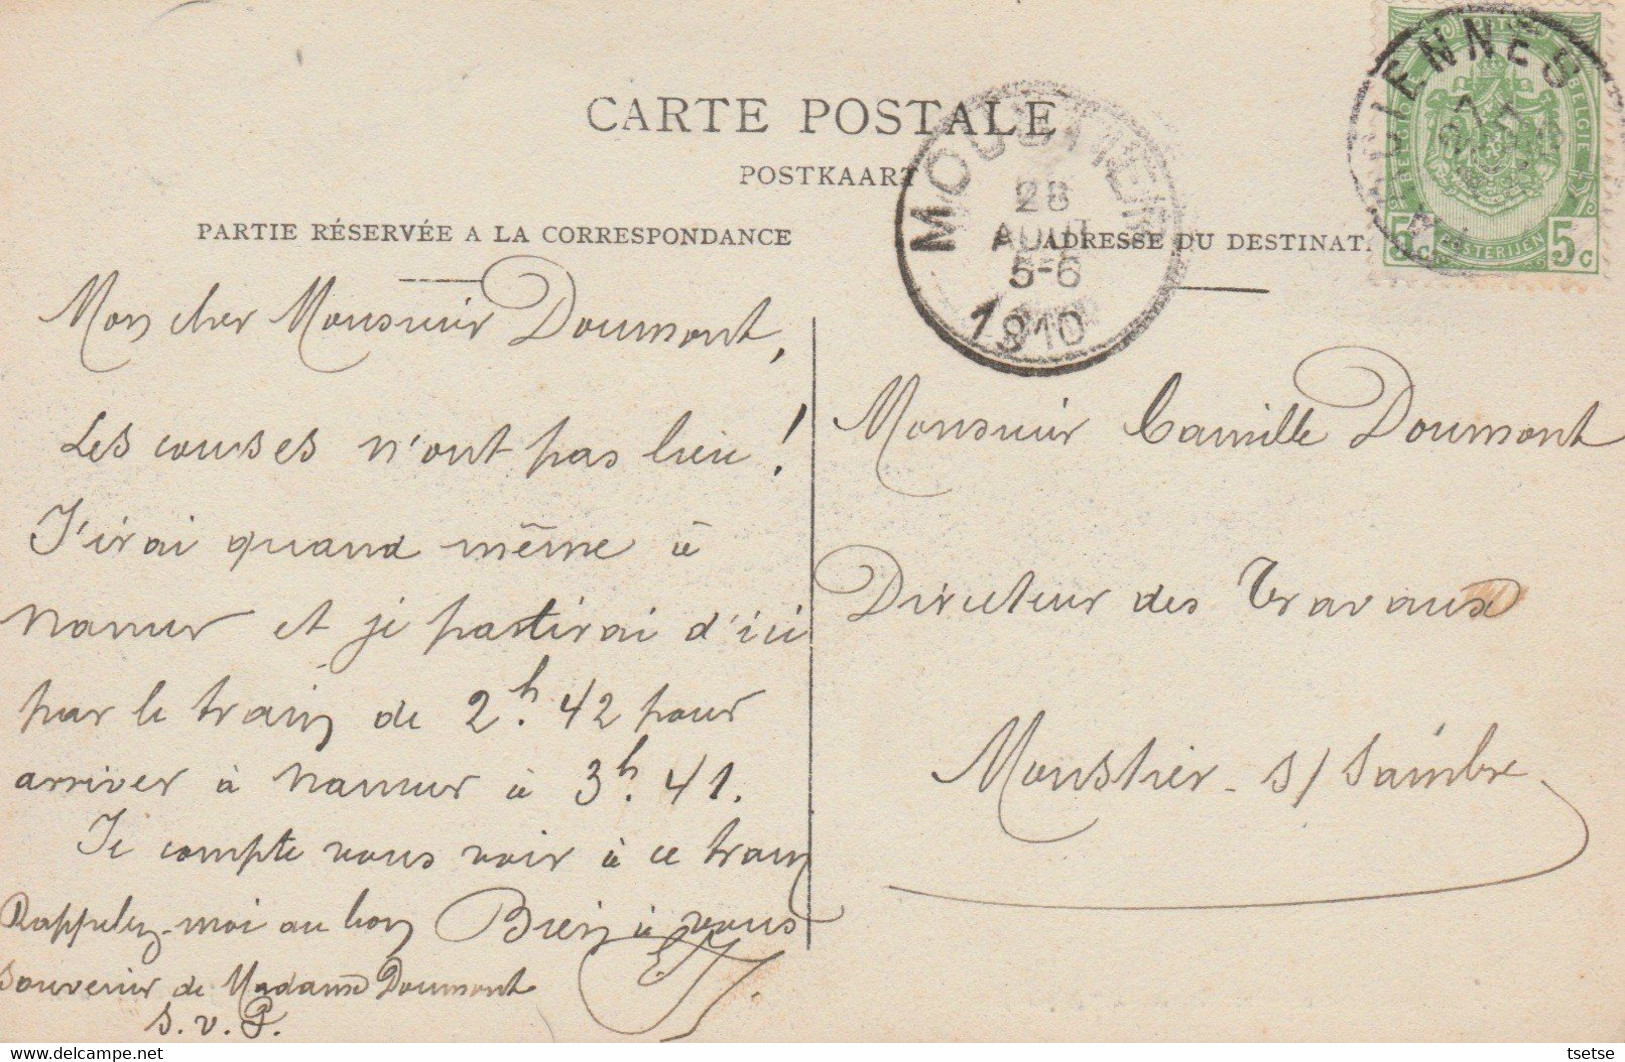 CARTE POSTALE
POSTKAART
PARTIE RÉSERVÉE A LA CORRESPONDANCE
ADRESSE DU DESTINAT
MOUSTIER
28
AOUT
5-6
1910
BELGIQUE
BELGIE
POSTERIJEN
5c 5c
Mon cher Monsieur Doumont,
Les courses n'ont pas lieu !
J'irai quand même à
Namur et je partirai d'ici
par le train de 2h. 42 pour
arriver à Namur à 3h. 41.
Je compte vous voir à ce train
Bien à vous
Rappelez-moi au bon
souvenir de Madame Doumont
S. v. P.
Monsieur Camille Doumont
Directeur des Travaux
Moustier - s/ Sambre
tsetse
www.delcampe.net